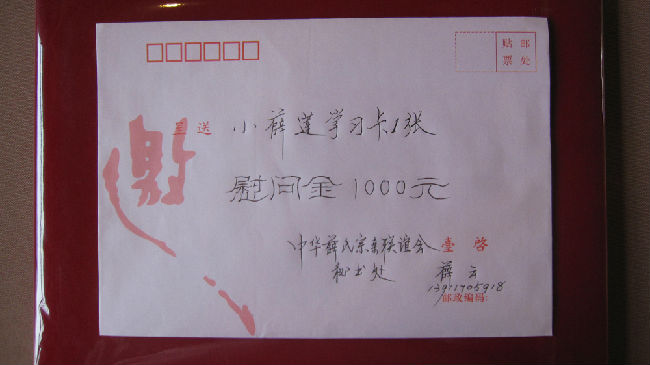 贴 邮
票 处
邀
呈 送 小薛莲学习卡1张
慰问金1000元
中华薛民宗亲联谊会 臺 啓
秘书处 薛云
13911705918
邮政编码: